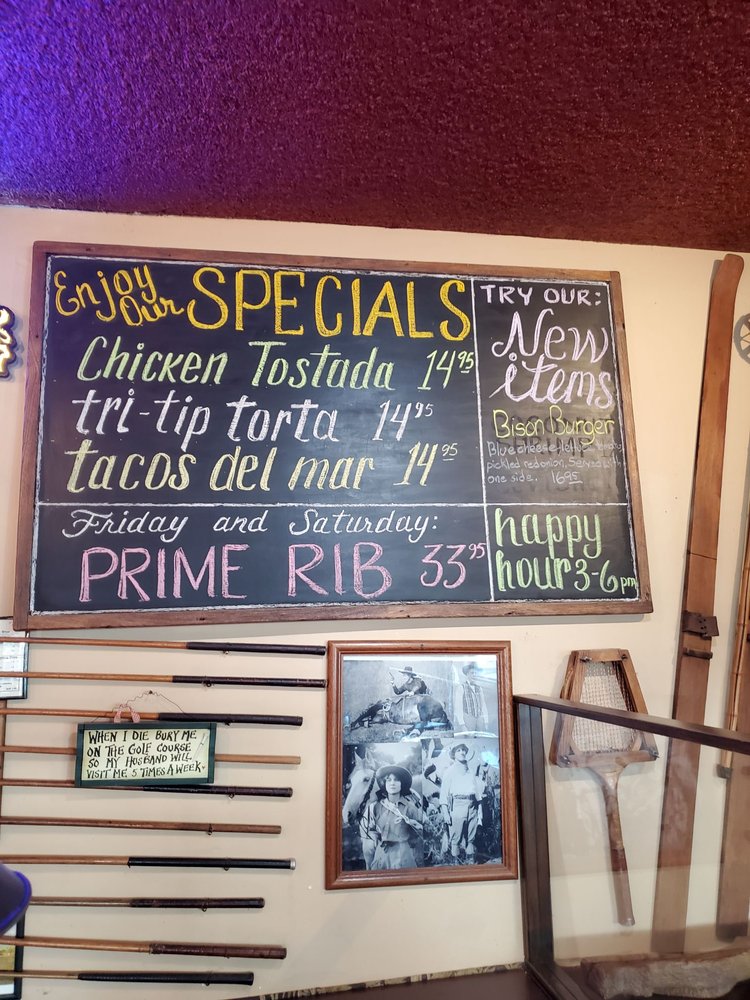 Enjoy Our SPECIALS
Chicken Tostada 14.95
tri-tip torta 14.95
tacos del mar 14.95
Friday and Saturday:
PRIME RIB 33.95
TRY OUR:
New
items
Bison Burger
Blue cheese, lettuce,
pickled red onion. Served with
one side. 16.95
happy
hour 3-6 pm
WHEN I DIE BURY ME
ON THE GOLF COURSE
SO MY HUSBAND WILL
VISIT ME 5 TIMES A WEEK.